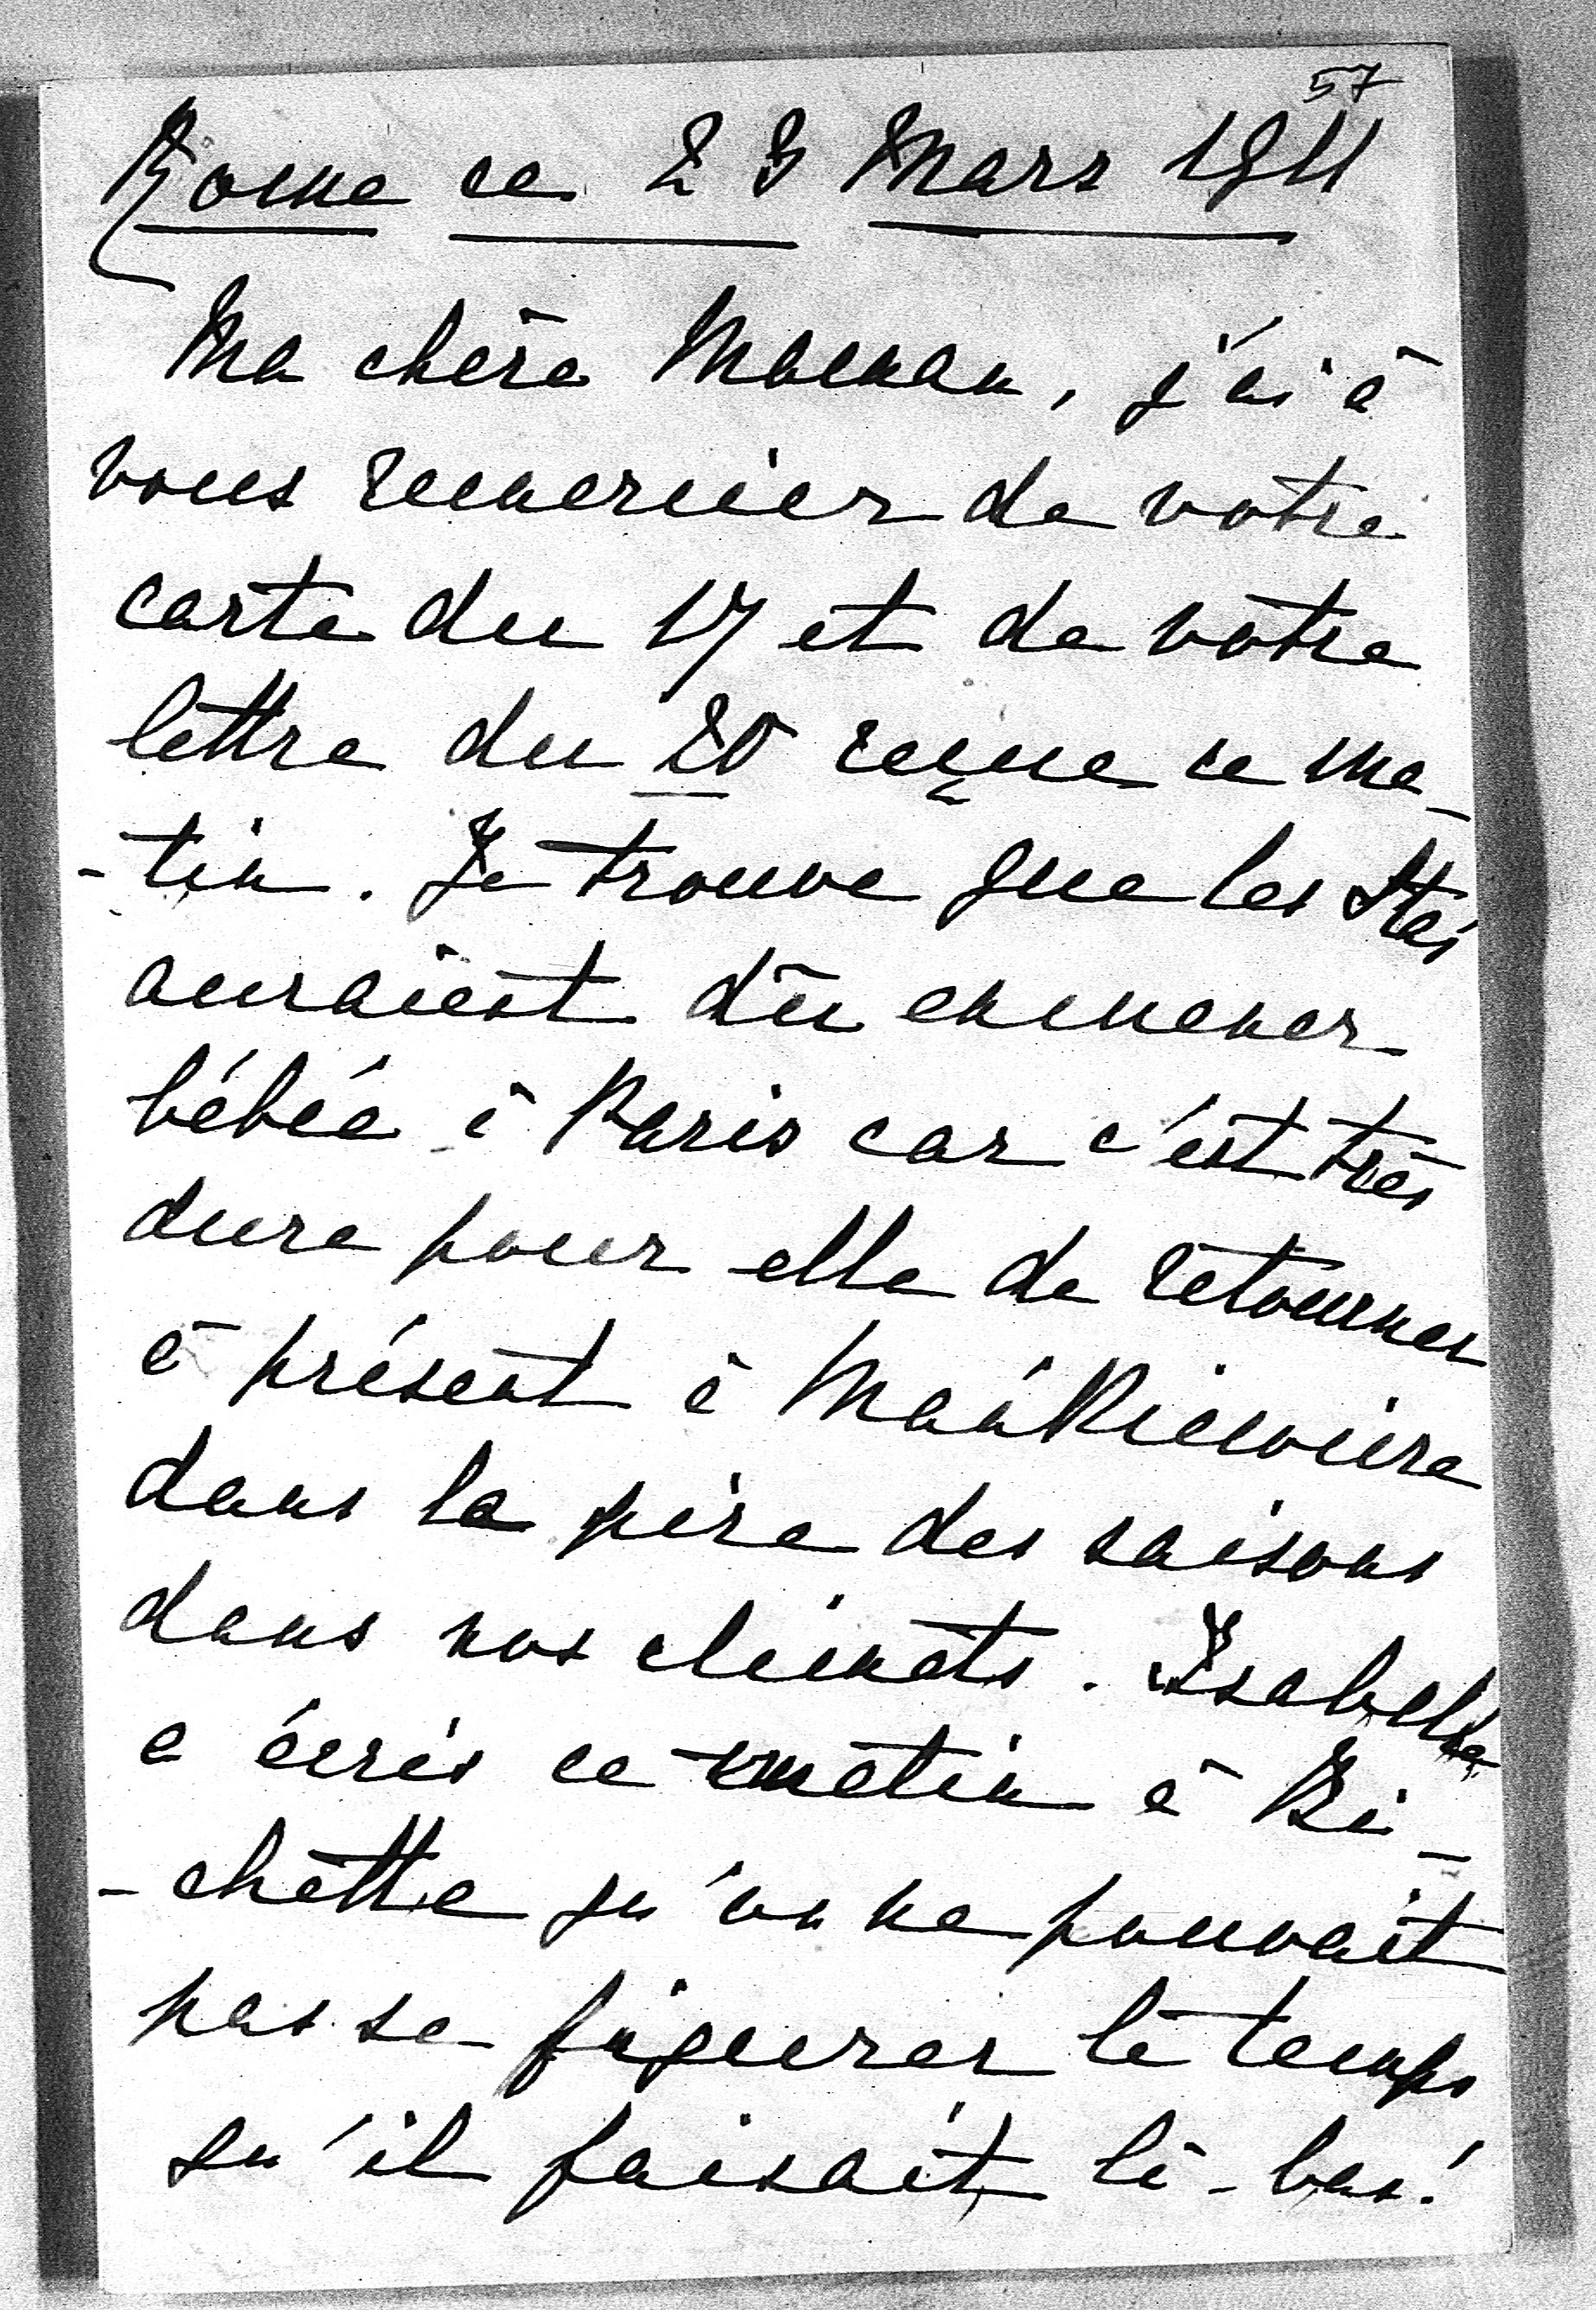 57
Rome ce 23 Mars 1911
Ma chère Maman, j'ai à
vous remercier de votre
carte du 17 et de votre
lettre du 20 reçue ce ma-
-tin. Je trouve que les Stas
auraient dû emmener
bébée à Paris car c'est très
dure pour elle de retourner
à présent à
dans la pire des saisons
dans nos climats. Isabelle
a écris ce matin à Bi-
-chette qu'on ne pouvait
pas se figurer le temps
qu'il faisait là-bas!